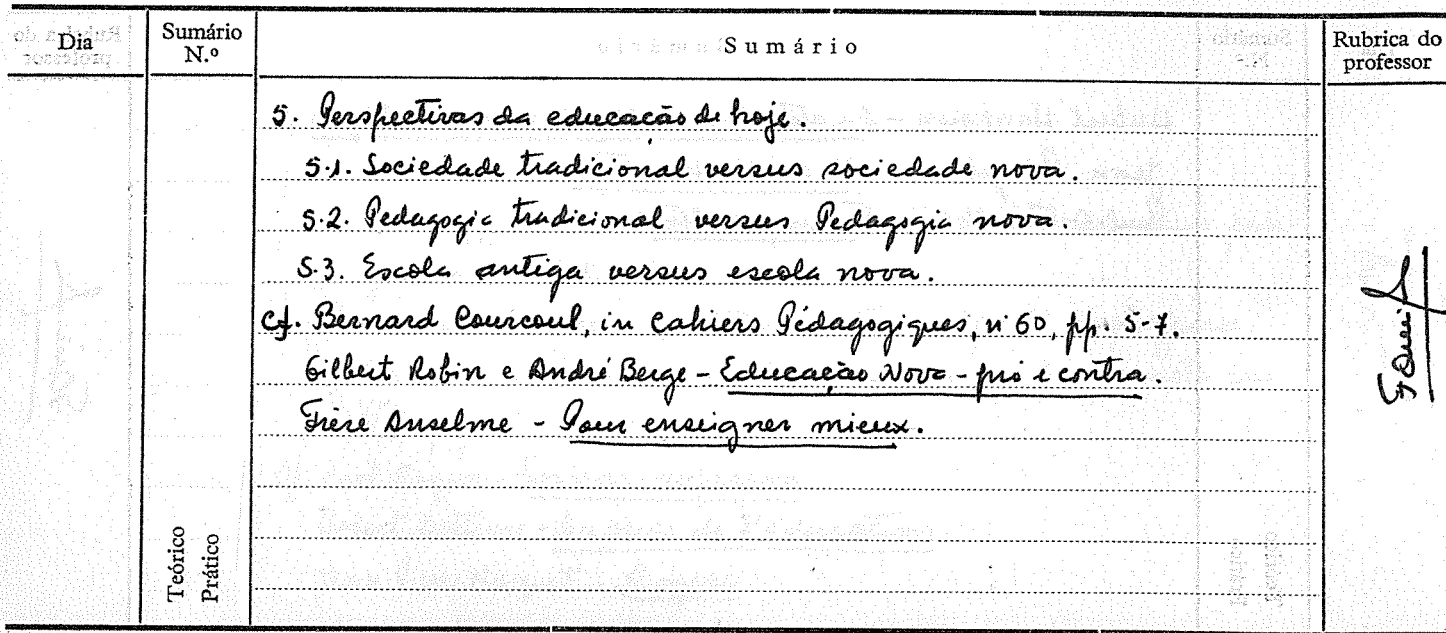 Dia
Sumário N.º
Sumário
Rubrica do professor
5. Perspectivas da educação de hoje.
5.1. Sociedade tradicional versus sociedade nova.
5.2. Pedagogia tradicional versus Pedagogia nova.
5.3. Escola antiga versus escola nova.
cf. Bernard Courcoul, in Cahiers Pédagogiques, nº 60, pp. 5-7.
Gilbert Robin e André Berge - Educação Nova - pró e contra.
Frère Anselme - Pour enseigner mieux.
Teórico
Prático